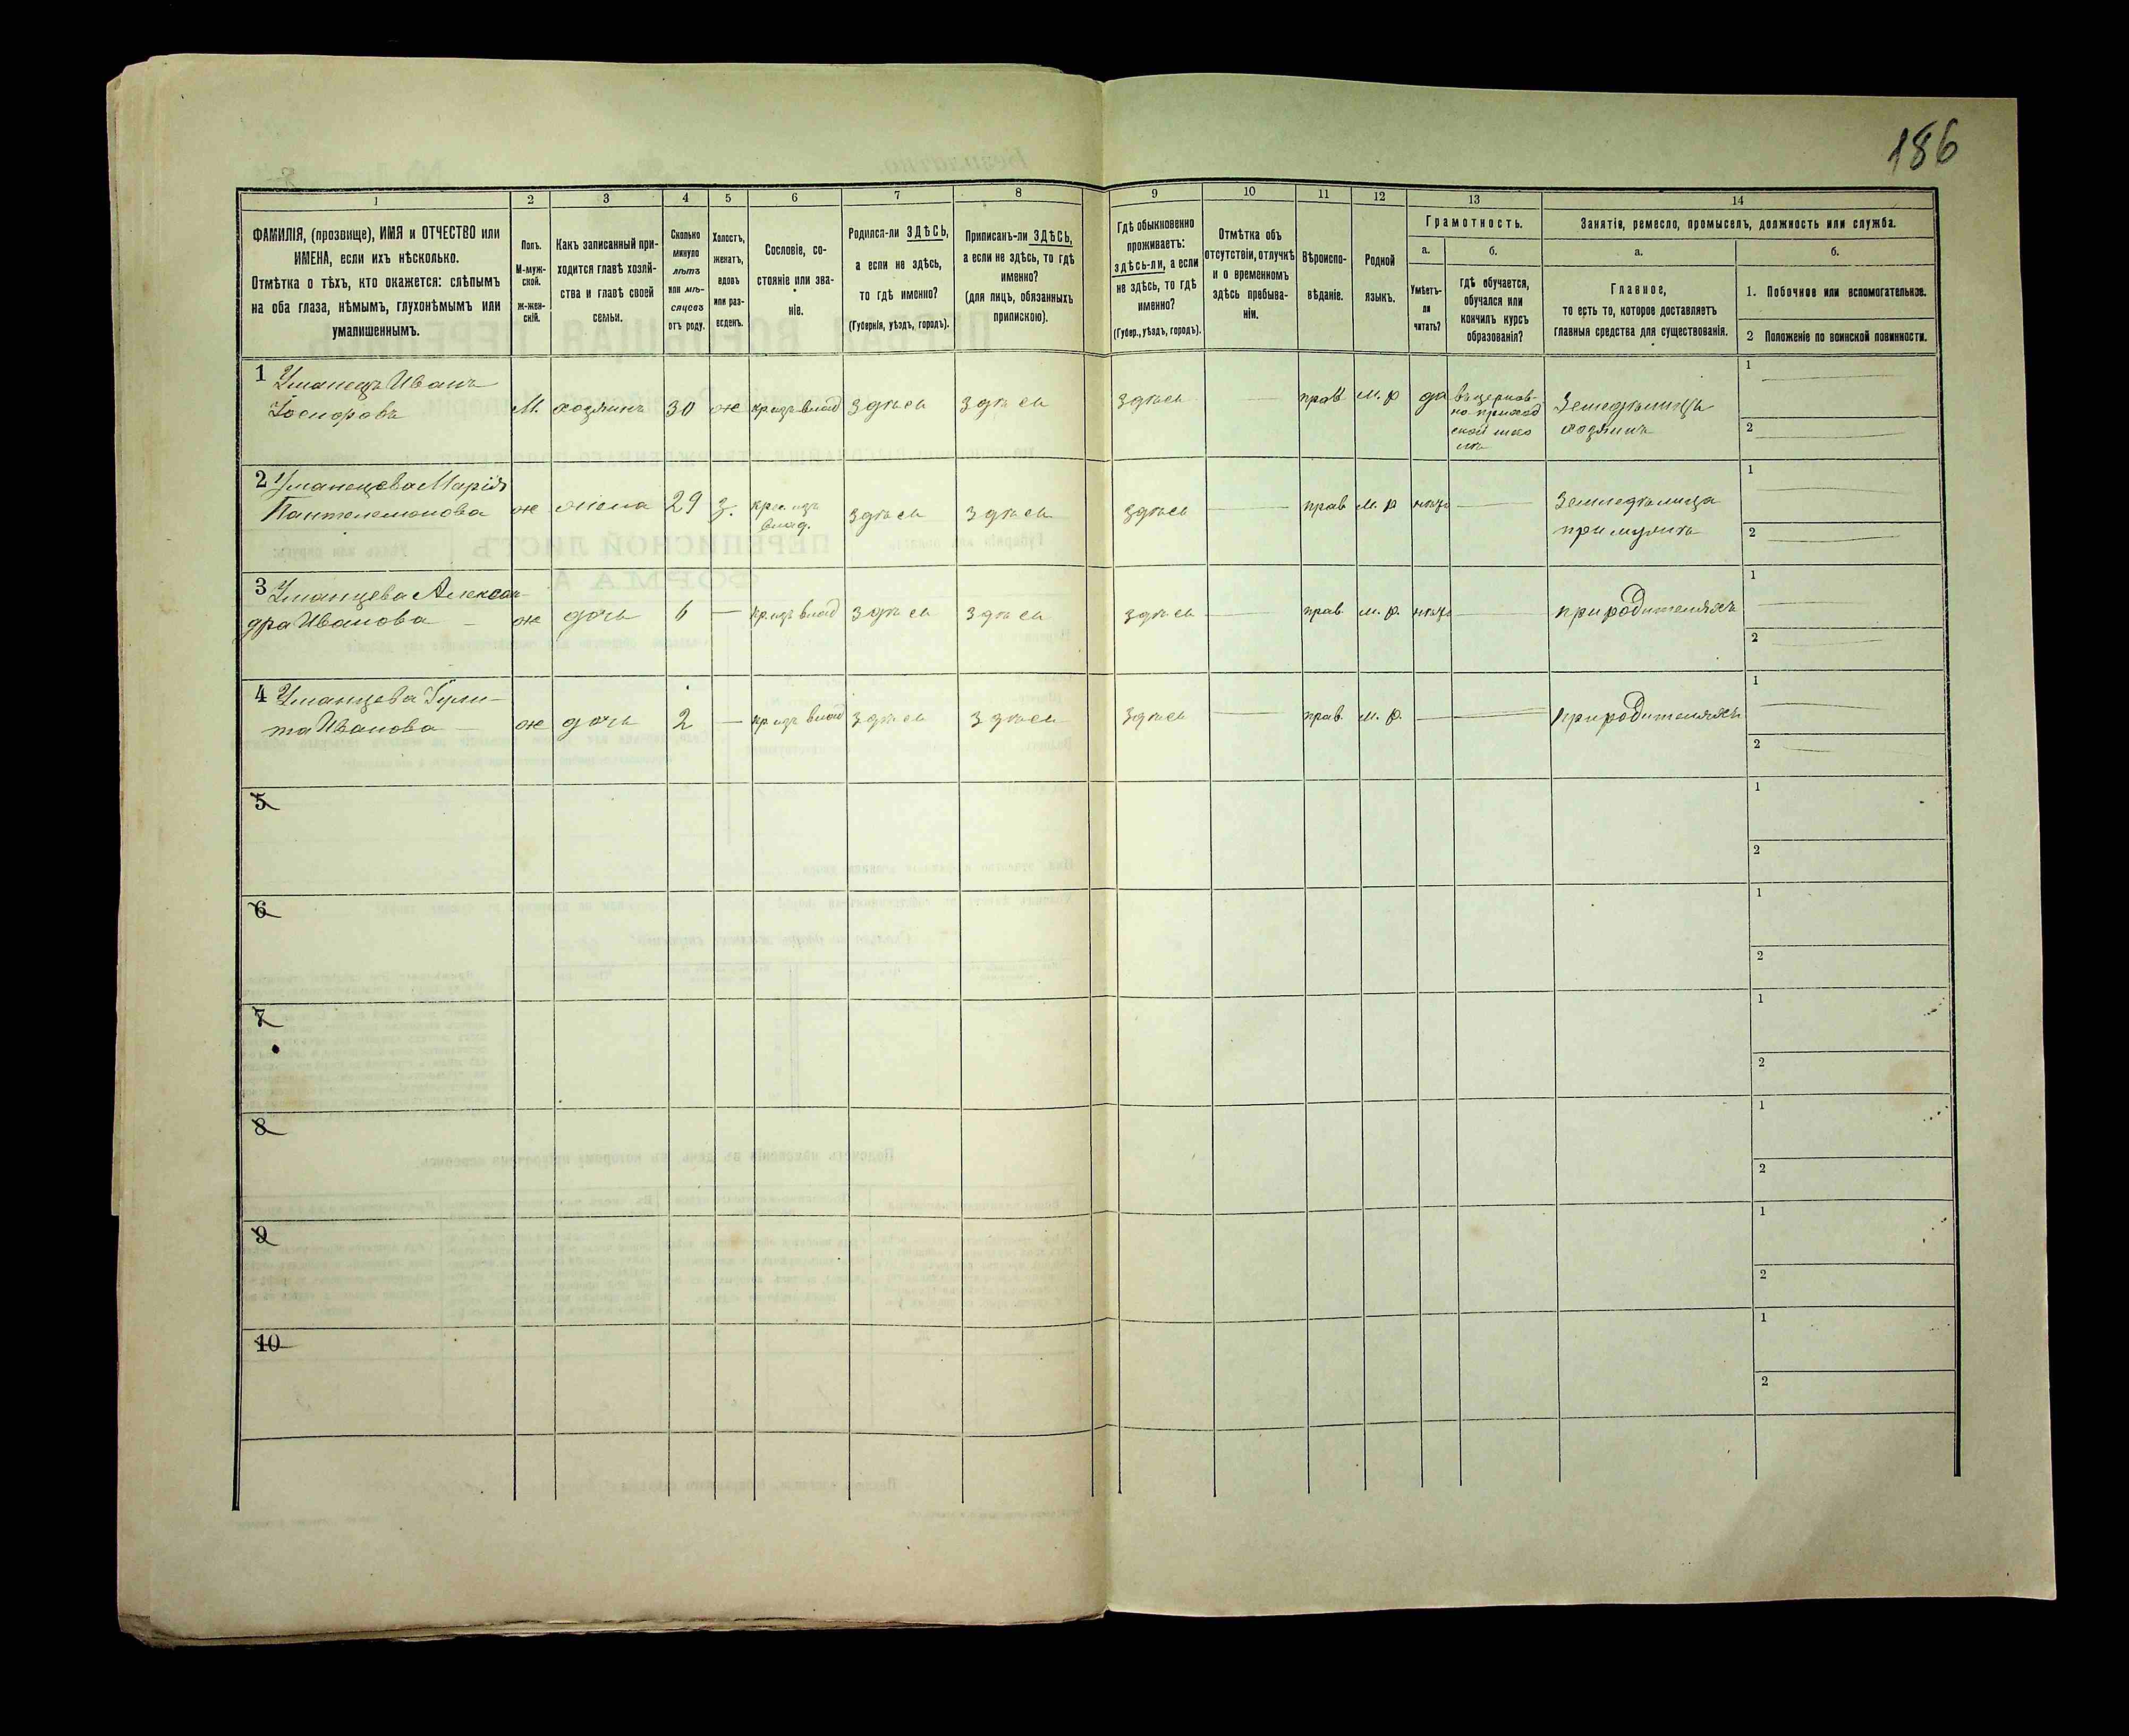 186
1
2
3
4
5
6
7
8
9
10
11
12
13
14
ФАМИЛІЯ, (прозвище), ИМЯ и ОТЧЕСТВО или
ИМЕНА, если ихъ нѣсколько.
Отмѣтка о тѣхъ, кто окажется: слѣпымъ
на оба глаза, нѣмымъ, глухонѣмымъ или
умалишеннымъ.
Полъ.
М-муж-
ской.
Ж-жен-
скій.
Какъ записанный при-
ходится главѣ хозяй-
ства и главѣ своей
семьи.
Сколько
минуло
лѣтъ
или мѣ-
сяцевъ
отъ роду.
Холостъ,
женатъ,
вдовъ
или раз-
веденъ.
Сословіе, со-
стояніе или зва-
ніе.
Родился-ли ЗДѢСЬ,
а если не здѣсь,
то гдѣ именно?
(Губернія, уѣздъ, городъ).
Приписанъ-ли ЗДѢСЬ,
а если не здѣсь, то гдѣ
именно?
(для лицъ, обязанныхъ
припискою).
Гдѣ обыкновенно
проживаетъ:
здѣсь-ли, а если
не здѣсь, то гдѣ
именно?
(Губер., уѣздъ, городъ).
Отмѣтка объ
отсутствіи, отлучкѣ
и о временномъ
здѣсь пребыва-
ніи.
Вѣроиспо-
вѣданіе.
Родной
языкъ.
Грамотность.
а.
Умѣетъ-
ли
читать?
б.
гдѣ обучается,
обучался или
кончилъ курсъ
образованія?
Занятія, ремесло, промыселъ, должность или служба.
а.
Главное,
то есть то, которое доставляетъ
главныя средства для существованія.
б.
1. Побочное или вспомогательное.
2 Положеніе по воинской повинности.
1 Уманецъ Иванъ
Іосифовъ
М. хозяинъ 30 ж кр изъ влад здѣсь здѣсь здѣсь — прав м. р да
въ церков-
но приход
ской шко
лѣ
Земледѣлецъ
хозяинъ
1
2
2 Уманецева Марія
Пантелемонова
ж жена 29 з. крес. изъ
влад.
здѣсь здѣсь здѣсь — прав м. р нѣтъ —
Земледѣлица
при мужѣ
1
2
3 Уманцева Алексан-
дра Иванова —
ж дочь 6 — кр. изъ влад здѣсь здѣсь здѣсь — прав. м. р. нѣтъ — при родителяхъ
1
2
4 Уманцева Іули-
та Иванова —
ж дочь 2 — кр изъ влад здѣсь здѣсь здѣсь — прав. м. р. — — при родителяхъ
1
2
5
1
2
6
1
2
7
1
2
8
1
2
9
1
2
10
1
2